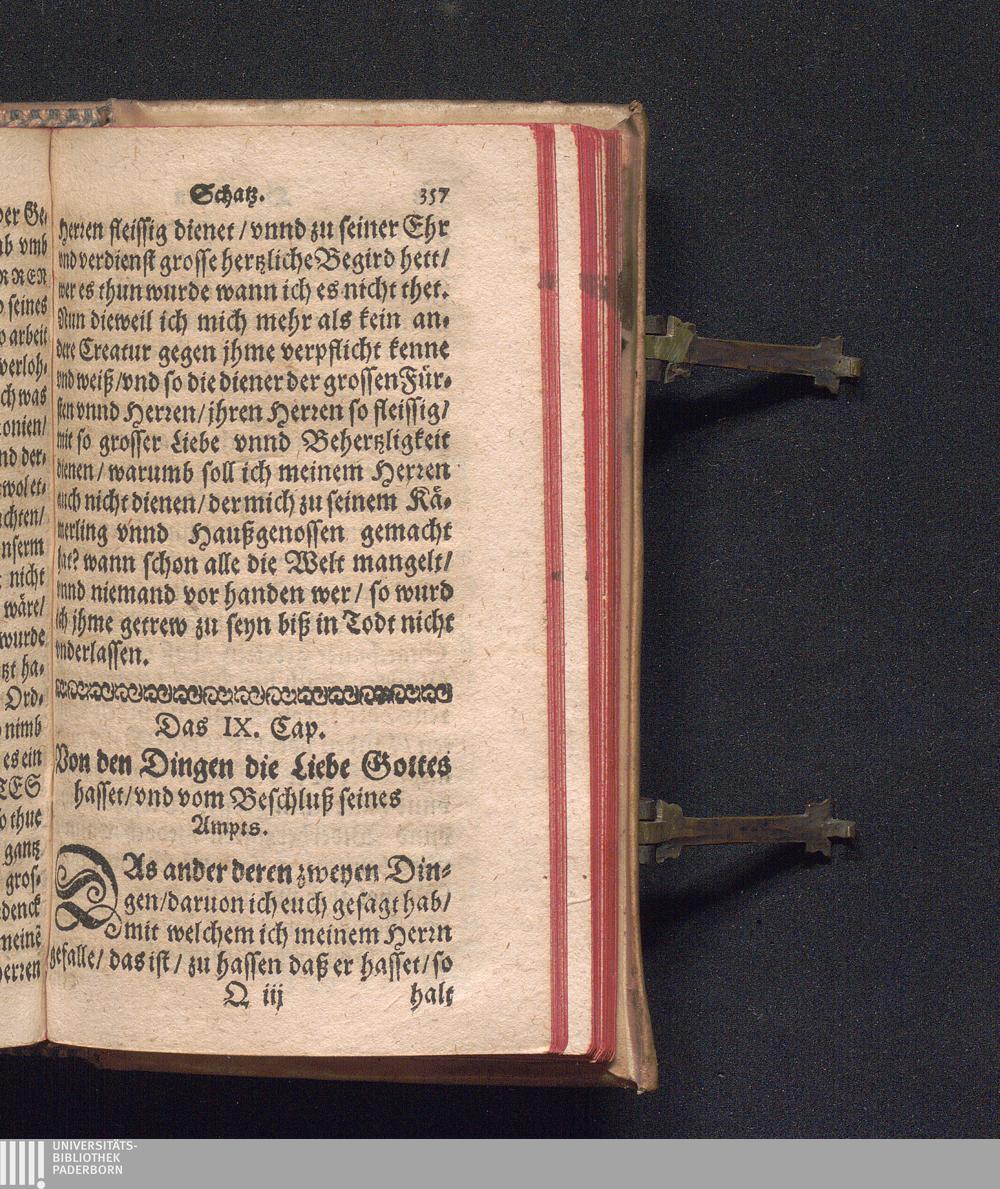 Schatz. 357
Herren fleissig dienet / vnnd zu seiner Ehr
vnd verdienst grosse hertzliche Begird hett /
wer es thun wurde wann ich es nicht thet.
Nun dieweil ich mich mehr als kein an-
dere Creatur gegen jhme verpflicht kenne
vnd weiß / vnd so die diener der grossen Für-
sten vnnd Herren / jhren Herren so fleissig /
mit so grosser Liebe vnnd Behertzligkeit
dienen / warumb soll ich meinem Herren
auch nicht dienen / der mich zu seinem Kä-
merling vnnd Haußgenossen gemacht
hat? wann schon alle die Welt mangelt /
vnnd niemand vor handen wer / so wurd
ich jhme getrew zu seyn biß in Todt nicht
vnderlassen.
Das IX. Cap.
Von den Dingen die Liebe Gottes
hasset / vnd vom Beschluß seines
Ampts.
DAs ander deren zweyen Din-
gen / daruon ich euch gesagt hab /
mit welchem ich meinem Herrn
gefalle / das ist / zu hassen daß er hasset / so
Q iij halt
der Ge-
vmb
RREN
seines
arbeit
verloh-
ch was
onien/
nd der-
wol et-
achten/
nserm
nicht
wäre/
wurde
tzt ha-
Ord-
nimb
es ein
TES
so thue
gantz
gros-
denck
meinē
Herren
UNIVERSITÄTS-
BIBLIOTHEK
PADERBORN